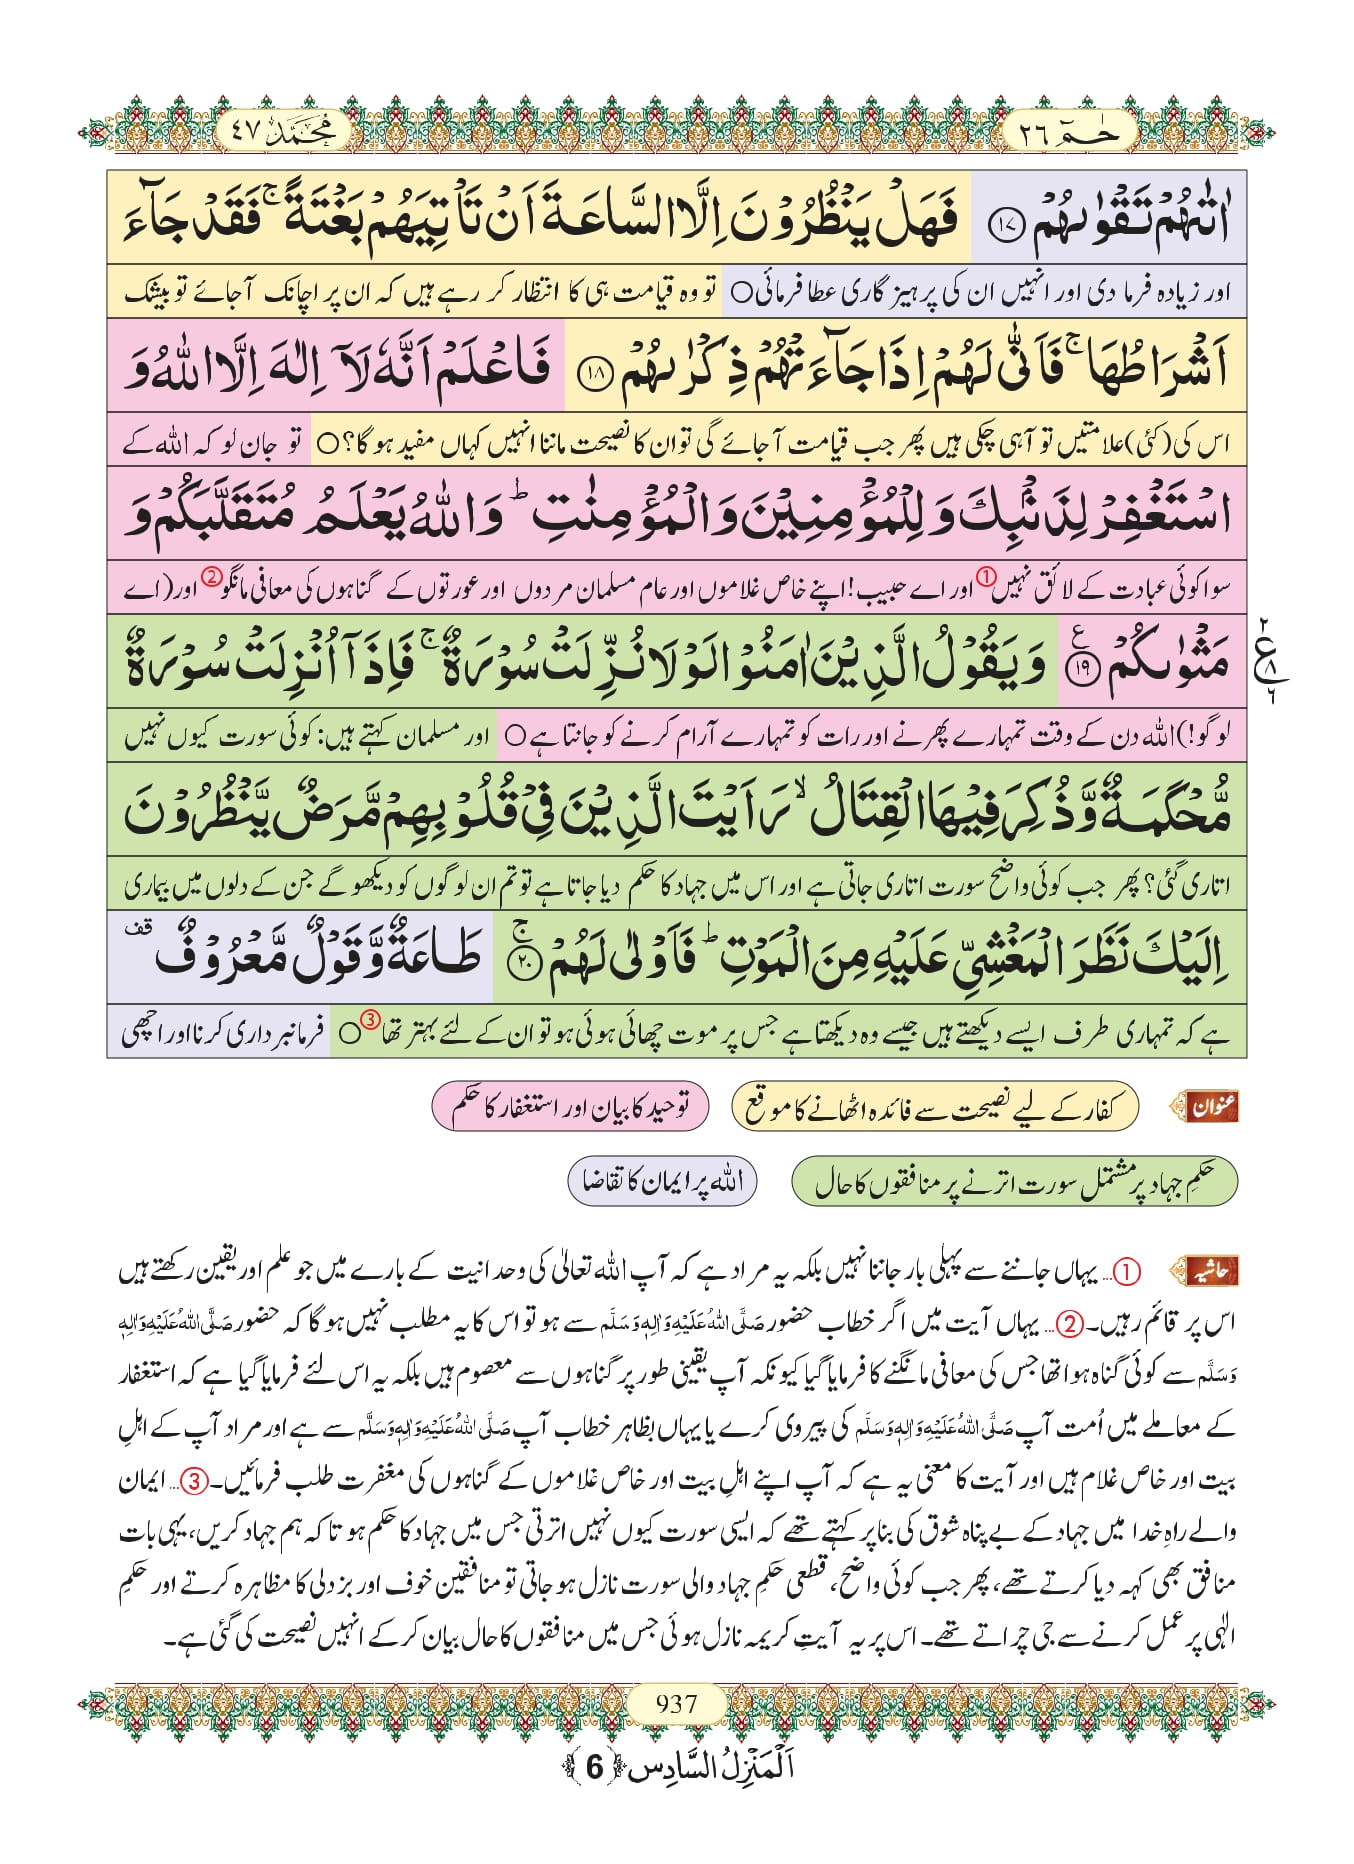 حٰمٓ ٢٦
مُحَمَّد ٤٧
اٰتٰىهُمْ تَقْوٰىهُمْ ﴿١٧﴾ فَهَلْ یَنْظُرُوْنَ اِلَّا السَّاعَةَ اَنْ تَاْتِیَهُمْ بَغْتَةً ۚ فَقَدْ جَآءَ
اور زیادہ فرما دی اور انہیں ان کی پرہیز گاری عطا فرمائی○ تو وہ قیامت ہی کا انتظار کر رہے ہیں کہ ان پر اچانک آجائے تو بیشک
اَشْرَاطُهَا ۚ فَاَنّٰى لَهُمْ اِذَا جَآءَتْهُمْ ذِكْرٰىهُمْ ﴿١٨﴾ فَاعْلَمْ اَنَّهٗ لَاۤ اِلٰهَ اِلَّا اللّٰهُ وَ
اس کی (کئی) علامتیں تو آہی چکی ہیں پھر جب قیامت آجائے گی تو ان کا نصیحت ماننا انہیں کہاں مفید ہو گا؟○ تو جان لو کہ اللہ کے
اسْتَغْفِرْ لِذَنْۢبِكَ وَ لِلْمُؤْمِنِیْنَ وَ الْمُؤْمِنٰتِ ؕ وَ اللّٰهُ یَعْلَمُ مُتَقَلَّبَكُمْ وَ
سوا کوئی عبادت کے لائق نہیں① اور اے حبیب! اپنے خاص غلاموں اور عام مسلمان مردوں اور عورتوں کے گناہوں کی معافی مانگو② اور (اے
مَثْوٰىكُمْ ﴿١٩﴾ ع وَ یَقُوْلُ الَّذِیْنَ اٰمَنُوْا لَوْ لَا نُزِّلَتْ سُوْرَةٌ ۚ فَاِذَاۤ اُنْزِلَتْ سُوْرَةٌ
٢ ع ٨ ٦
لوگو!) اللہ دن کے وقت تمہارے پھرنے اور رات کو تمہارے آرام کرنے کو جانتا ہے○ اور مسلمان کہتے ہیں: کوئی سورت کیوں نہیں
مُّحْكَمَةٌ وَّ ذُكِرَ فِیْهَا الْقِتَالُ ۙ رَاَیْتَ الَّذِیْنَ فِیْ قُلُوْبِهِمْ مَّرَضٌ یَّنْظُرُوْنَ
اتاری گئی؟ پھر جب کوئی واضح سورت اتاری جاتی ہے اور اس میں جہاد کا حکم دیا جاتا ہے تو تم ان لوگوں کو دیکھو گے جن کے دلوں میں بیماری
اِلَیْكَ نَظَرَ الْمَغْشِیِّ عَلَیْهِ مِنَ الْمَوْتِ ؕ فَاَوْلٰى لَهُمْ ﴿٢٠﴾ ۚ طَاعَةٌ وَّ قَوْلٌ مَّعْرُوْفٌ قف
ہے کہ تمہاری طرف ایسے دیکھتے ہیں جیسے وہ دیکھتا ہے جس پر موت چھائی ہوئی ہو تو ان کے لئے بہتر تھا③○ فرمانبرداری کرنا اور اچھی
عنوان کفار کے لیے نصیحت سے فائدہ اٹھانے کا موقع توحید کا بیان اور استغفار کا حکم
حکمِ جہاد پر مشتمل سورت اترنے پر منافقوں کا حال اللہ پر ایمان کا تقاضا
حاشیہ ①... یہاں جاننے سے پہلی بار جاننا نہیں بلکہ یہ مراد ہے کہ آپ اللہ تعالیٰ کی وحدانیت کے بارے میں جو علم اور یقین رکھتے ہیں
اس پر قائم رہیں۔ ②... یہاں آیت میں اگر خطاب حضور صَلَّی اللہُ عَلَیْہِ وَاٰلِہٖ وَسَلَّم سے ہو تو اس کا یہ مطلب نہیں ہو گا کہ حضور صَلَّی اللہُ عَلَیْہِ وَاٰلِہٖ
وَسَلَّم سے کوئی گناہ ہوا تھا جس کی معافی مانگنے کا فرمایا گیا کیونکہ آپ یقینی طور پر گناہوں سے معصوم ہیں بلکہ یہ اس لئے فرمایا گیا ہے کہ استغفار
کے معاملے میں اُمت آپ صَلَّی اللہُ عَلَیْہِ وَاٰلِہٖ وَسَلَّم کی پیروی کرے یا یہاں بظاہر خطاب آپ صَلَّی اللہُ عَلَیْہِ وَاٰلِہٖ وَسَلَّم سے ہے اور مراد آپ کے اہلِ
بیت اور خاص غلام ہیں اور آیت کا معنی یہ ہے کہ آپ اپنے اہلِ بیت اور خاص غلاموں کے گناہوں کی مغفرت طلب فرمائیں۔ ③... ایمان
والے راہِ خدا میں جہاد کے بے پناہ شوق کی بنا پر کہتے تھے کہ ایسی سورت کیوں نہیں اترتی جس میں جہاد کا حکم ہو تا کہ ہم جہاد کریں، یہی بات
منافق بھی کہہ دیا کرتے تھے، پھر جب کوئی واضح، قطعی حکمِ جہاد والی سورت نازل ہو جاتی تو منافقین خوف اور بزدلی کا مظاہرہ کرتے اور حکمِ
الٰہی پر عمل کرنے سے جی چراتے تھے۔ اس پر یہ آیتِ کریمہ نازل ہوئی جس میں منافقوں کا حال بیان کر کے انہیں نصیحت کی گئی ہے۔
937
اَلْمَنْزِلُ السَّادِس ﴿6﴾